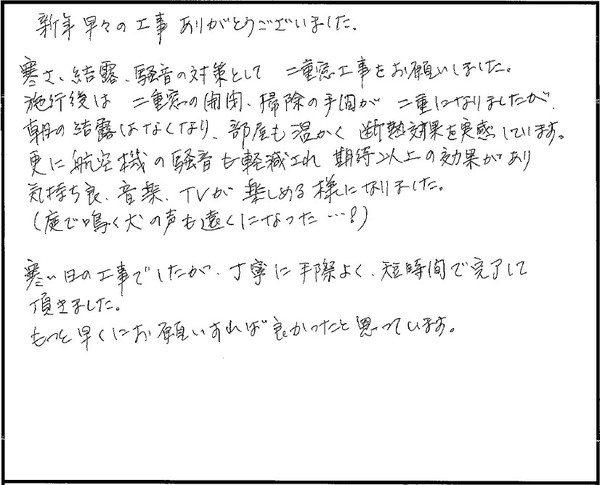 新年早々の工事ありがとうございました。
寒さ、結露、騒音の対策として 二重窓工事をお願いしました。
施行後は 二重窓の開閉、掃除の手間が 二重になりましたが、
朝の結露はなくなり、部屋も温かく 断熱効果を実感しています。
更に航空機の騒音も軽減され 期待以上の効果があり
気持ち良く 音楽、TVが 楽しめる様になりました。
(庭で鳴く犬の声も遠くになった…?)
寒い日の工事でしたが、丁寧に手際よく、短時間で完了して
頂きました。
もっと早くにお願いすれば良かったと思っています。